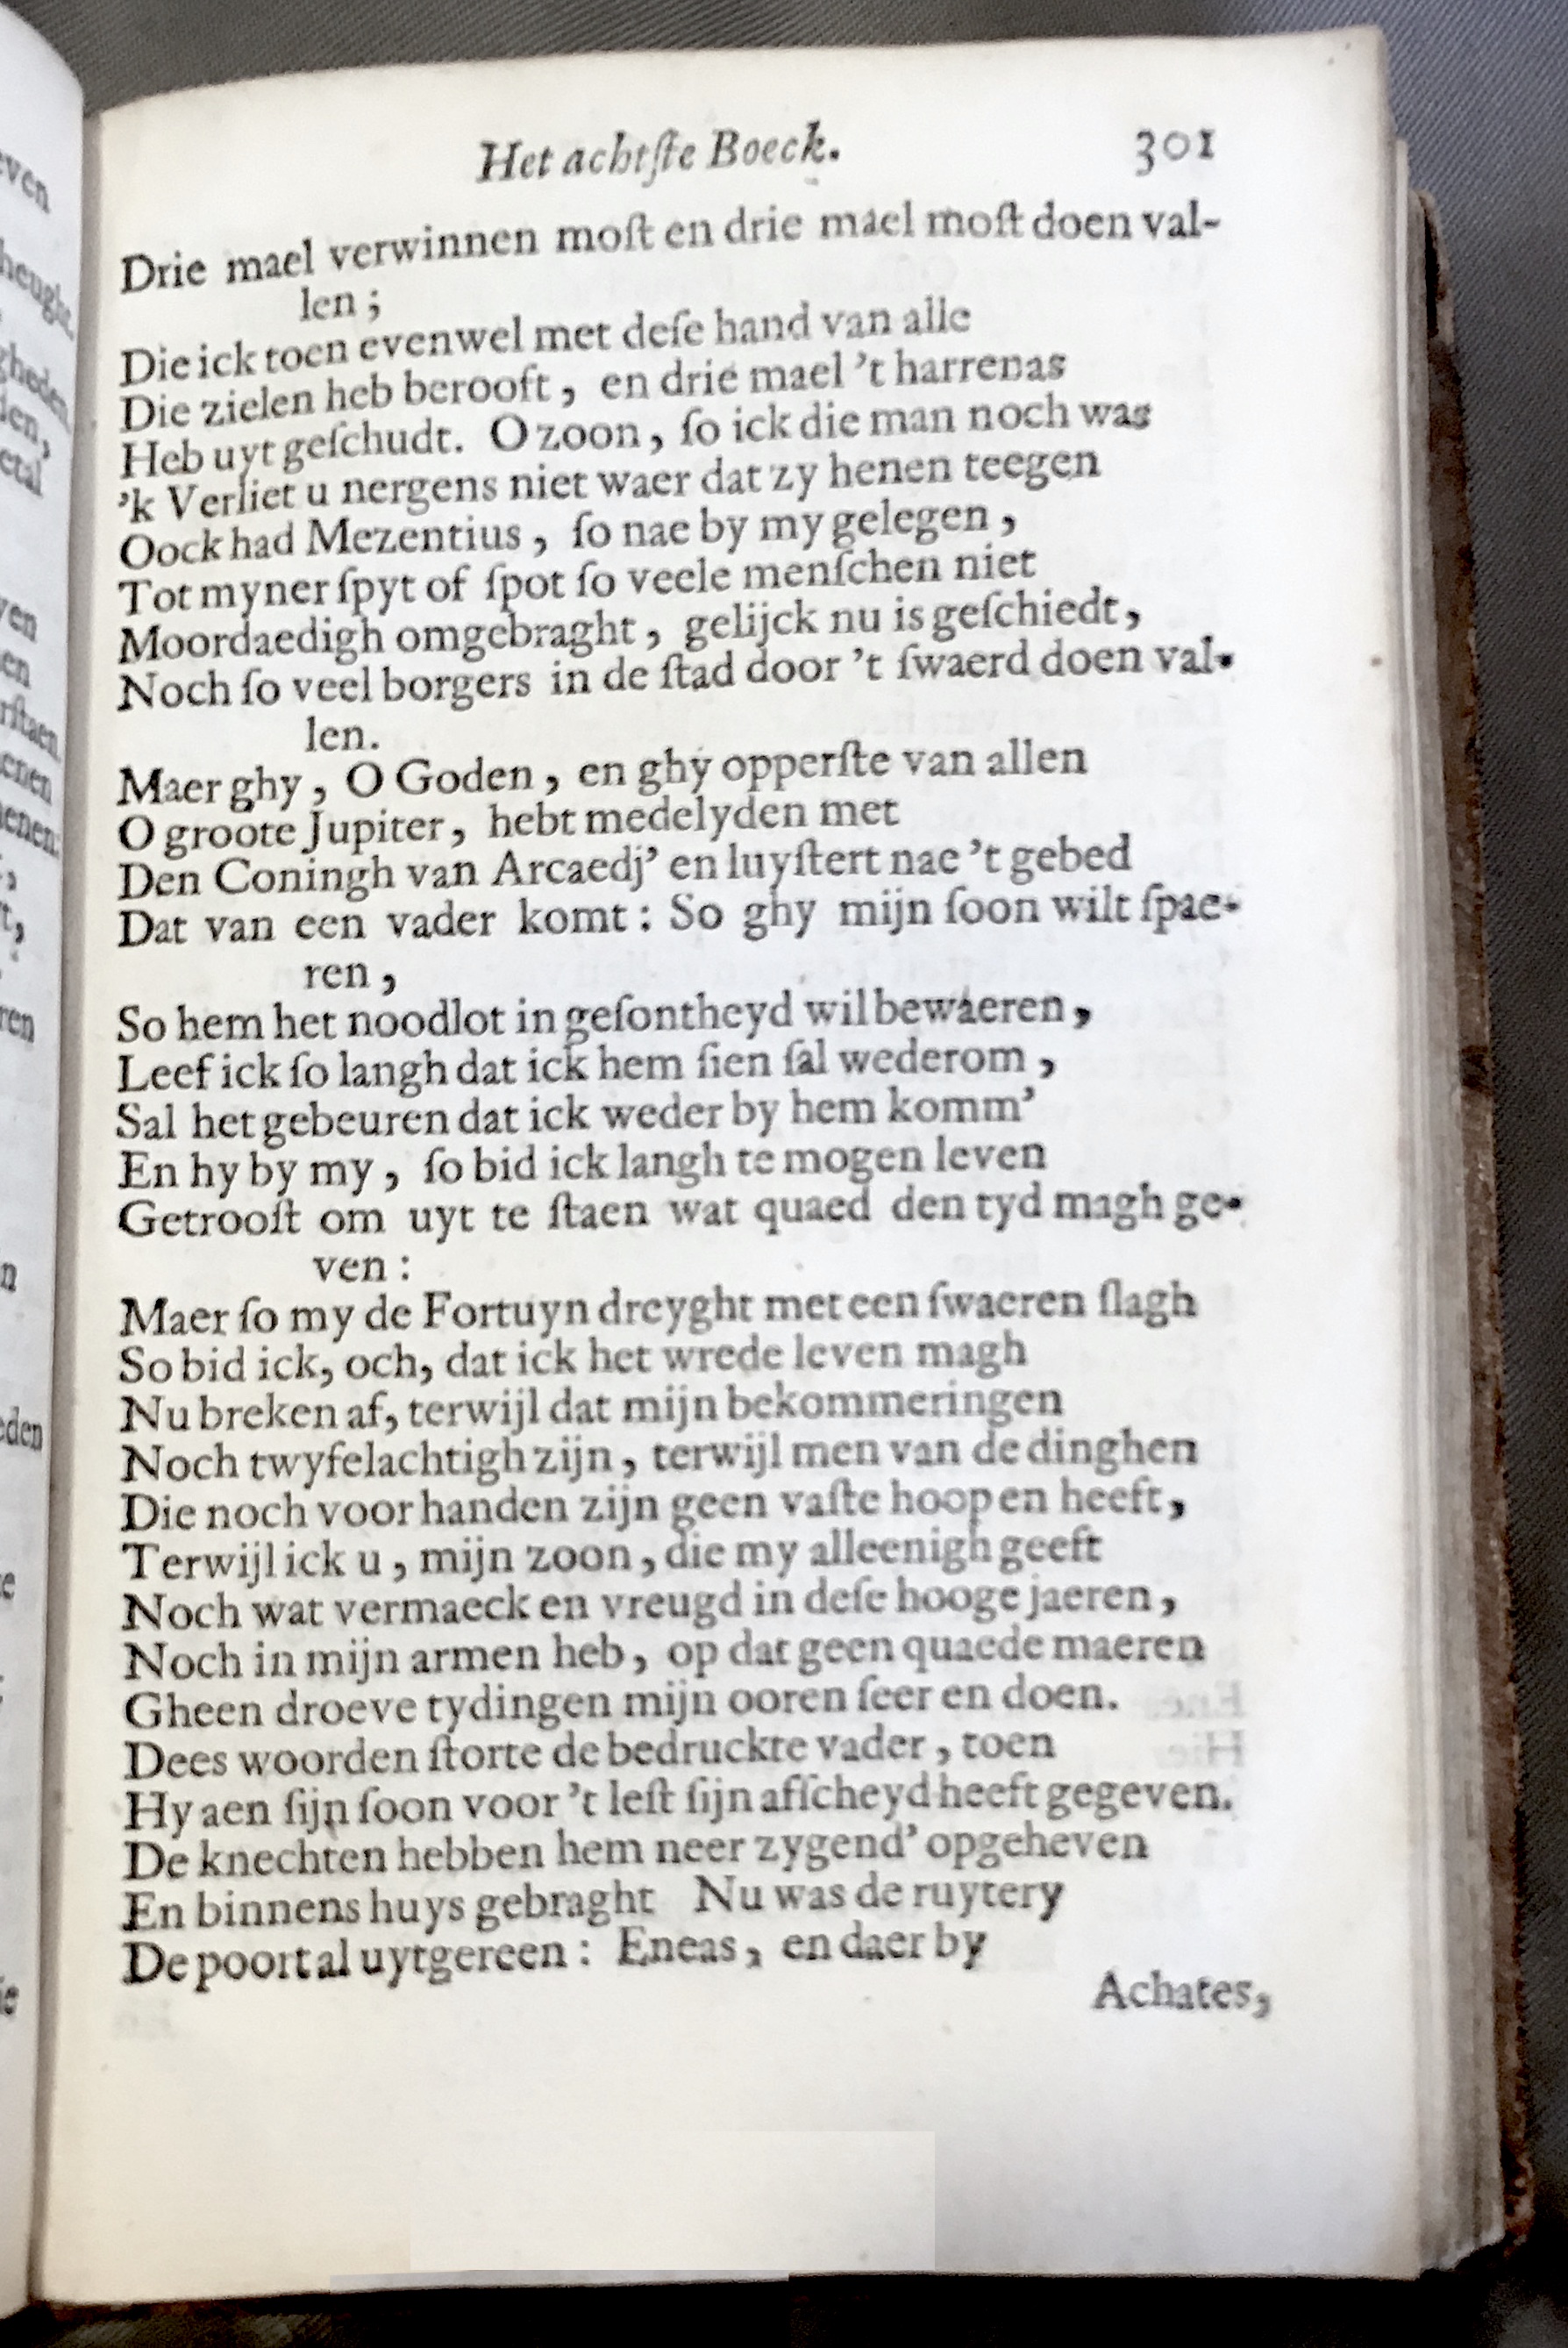 Het achtſte Boeck. 301
Drie mael verwinnen moſt en drie mael moſt doen val-
len ;
Die ick toen evenwel met deſe hand van alle
Die zielen heb berooft , en drie mael 't harrenas
Heb uyt geſchudt. O zoon , ſo ick die man noch was
'k Verliet u nergens niet waer dat zy henen teegen
Oock had Mezentius , ſo nae by my gelegen ,
Tot myner ſpyt of ſpot ſo veele menſchen niet
Moordaedigh omgebraght , gelijck nu is geſchiedt ,
Noch ſo veel borgers in de ſtad door 't ſwaerd doen val-
len.
Maer ghy , O Goden , en ghy opperſte van allen
O groote Jupiter , hebt medelyden met
Den Coningh van Arcaedj' en luyſtert nae 't gebed
Dat van een vader komt : So ghy mijn ſoon wilt ſpae-
ren ,
So hem het noodlot in geſontheyd wil bewaeren ,
Leef ick ſo langh dat ick hem ſien ſal wederom ,
Sal het gebeuren dat ick weder by hem komm'
En hy by my , ſo bid ick langh te mogen leven
Getrooſt om uyt te ſtaen wat quaed den tyd magh ge-
ven :
Maer ſo my de Fortuyn dreyght met een ſwaeren ſlagh
So bid ick, och, dat ick het wrede leven magh
Nu breken af, terwijl dat mijn bekommeringen
Noch twyfelachtigh zijn , terwijl men van de dinghen
Die noch voor handen zijn geen vaſte hoop en heeft ,
Terwijl ick u , mijn zoon , die my alleenigh geeft
Noch wat vermaeck en vreugd in deſe hooge jaeren ,
Noch in mijn armen heb , op dat geen quaede maeren
Gheen droeve tydingen mijn ooren ſeer en doen.
Dees woorden ſtorte de bedruckte vader , toen
Hy aen ſijn ſoon voor 't leſt ſijn afſcheyd heeft gegeven.
De knechten hebben hem neer zygend' opgeheven
En binnens huys gebraght Nu was de ruytery
De poort al uytgereen : Eneas , en daer by
Achates,